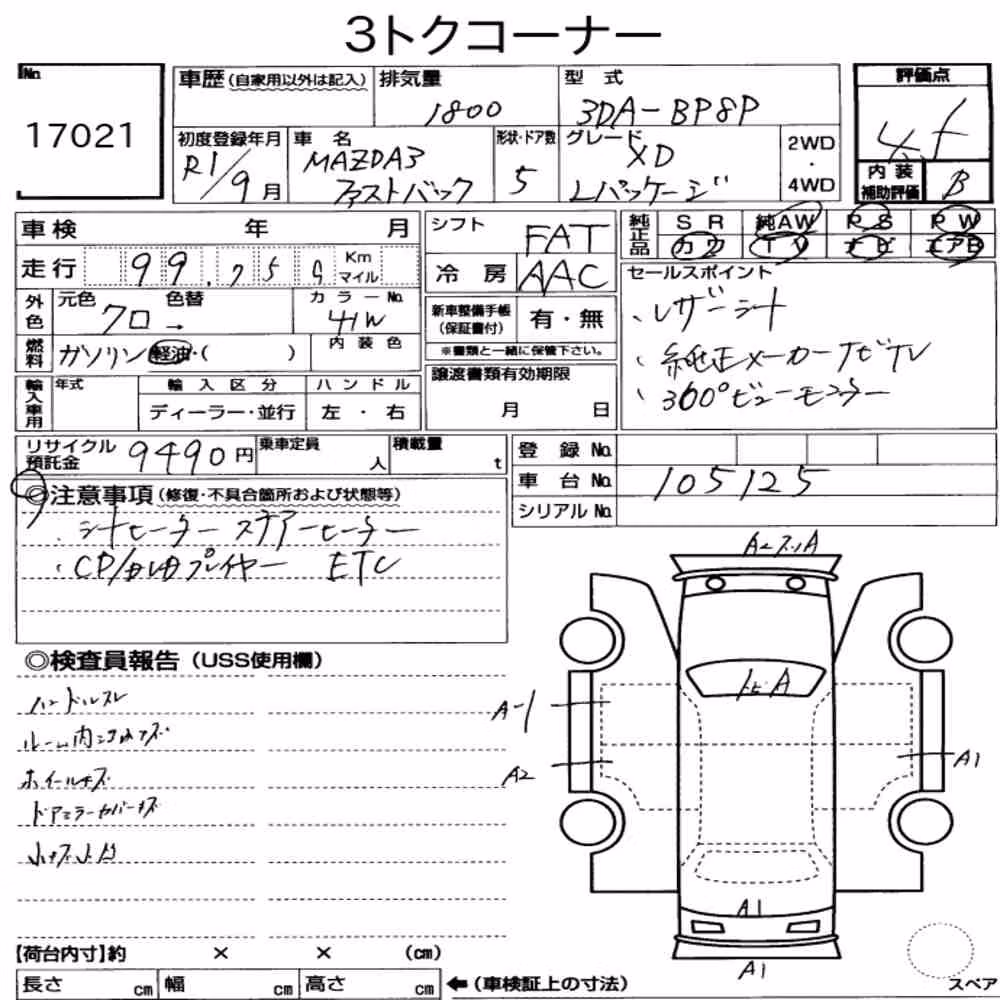 3トクコーナー
No.
17021
車歴(自家用以外は記入)
排気量
1800
型式
3DA-BP8P
評価点
初度登録年月
R1/9月
車名
MAZDA3
ファストバック
形状・ドア数
5
グレード
XD
Lパッケージ
2WD
・
4WD
内装
補助評価
B
車検 年 月
走行 99,75 Km
マイル
外色
元色
クロ→
色替
カラーNo.
41W
燃料
ガソリン・軽油・( )
内装色
輸入車用
年式
輸入区分
ディーラー・並行
ハンドル
左・右
シフト
FAT
冷房
AAC
新車整備手帳
(保証書付)
有・無
※書類と一緒に保管下さい。
譲渡書類有効期限
月 日
純正品
SR 純AW PS PW
カワ TV ナビ エアB
セールスポイント
・レザーシート
・純正メーカーナビTV
・360°ビューモニター
リサイクル
預託金
9490円
乗車定員
人
積載量
t
登録No.
車台No.
105125
シリアルNo.
◎注意事項(修復・不具合箇所および状態等)
・シートヒーター ステアヒーター
・CD/DVDプレイヤー ETC
◎検査員報告(USS使用欄)
ハンドルスレ
ホイールキズ
ドアミラーカバーキズ
A-1
A2
トビA
A1
A1
A1
【荷台内寸】約 × × (cm)
長さ cm 幅 cm 高さ cm ←(車検証上の寸法)
スペア